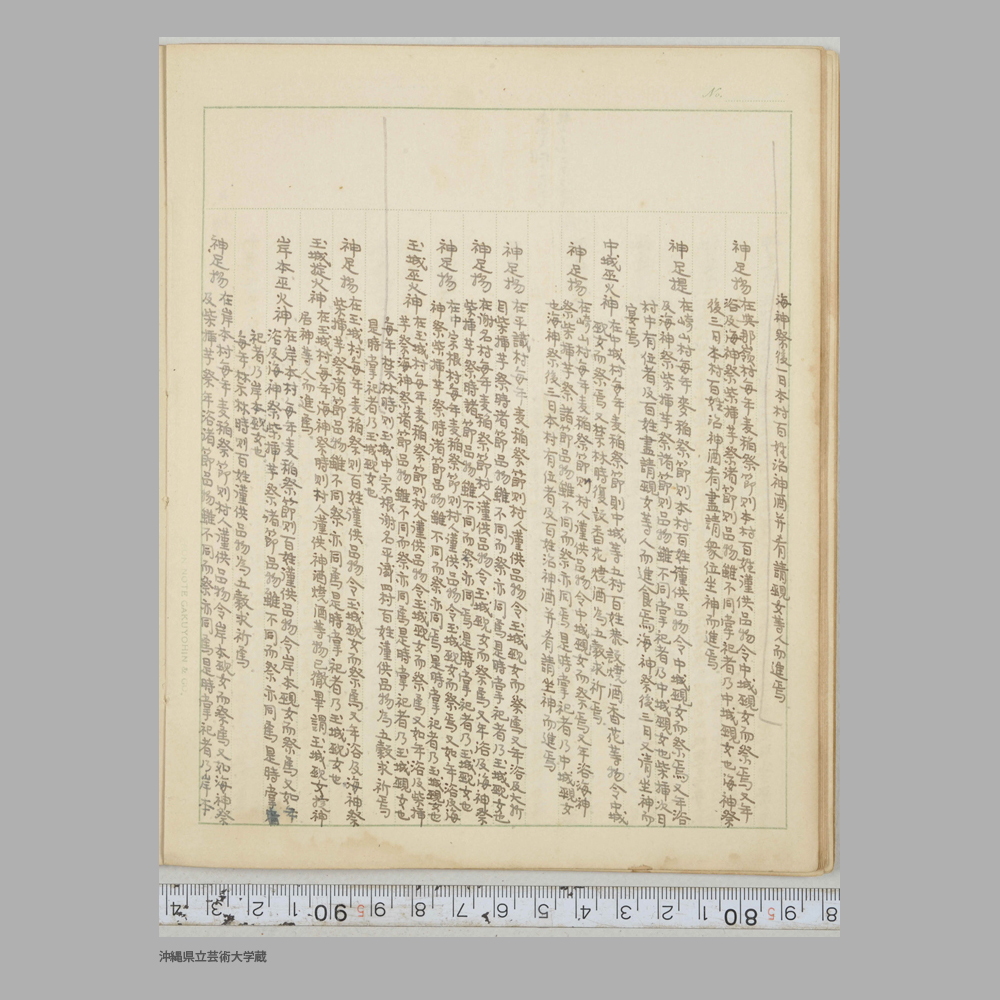 海神祭後一日本村百姓沿神酒并肴請覡女等人而進焉
神足揚 在與那嶺村每年麦稲祭節則本村百姓謹供品物令中城覡女而祭焉又年
浴及海神祭柴揷芋祭諸節則品物雖不同掌祀者乃中城覡女也海神祭
後三日本村百姓沿神酒肴盡請衆位坐神而進焉
神足提 在崎山村每年麥稲祭節則本村百姓謹供品物令中城覡女而祭焉又年浴
及海神祭芋祭諸節則品物雖不同掌祀者乃中城覡女也柴揷次日
村中有位者及百姓盡請覡女等人而進食焉海神祭後三日又請坐神而
宴焉
中城巫火神 在中城村每年麦稲祭節則中城等五村百姓恭設燒酒香花等物令中城
覡女而祭焉又禁林時復設香花燒酒為五穀求祈焉
神足揚 在崎山村每年麦稲祭節則村人謹供品物令中城覡女而祭焉又年浴海神
祭柴揷芋祭諸節品物雖不同而祭亦同焉是時掌祀者乃中城覡女
也海神祭後三日本村有位者及百姓沿神酒并肴請坐神而進焉
神足揚 在平識村每年麦稲祭節則村人謹供品物令玉城覡女而祭焉又年浴及大祈
目柴揷芋祭時渚節品物雖不同而祭亦同焉是時掌祀者乃玉城覡女也
神足揚 在謝名村每年麦稲祭節則村人謹供品物令玉城覡女而祭焉又年浴及海神祭
柴揷芋祭時諸節品物雖不同而祭亦同焉是時掌祀者乃玉城覡女也
神足揚 在中宗根村每年麦稲祭節則村人謹供品物令玉城覡女而祭焉又如年浴及海
神祭柴揷芋祭時渚節品物雖不同而祭亦同焉是時掌祀者乃玉城覡女也
玉城巫火神 在玉城村每年麦稲祭節則村人謹供品物令玉城覡女而祭焉又如年浴及柴揷
芋祭海神祭渚節品物雖不同而祭亦同焉是時掌祀者乃玉城覡女也
每年禁林時則玉城中宗根謝名平識四村百姓謹供品物為五穀求祈焉
是時掌祀者乃玉城覡女也
神足揚 在玉城村每年麦稲祭節則百姓謹供品物令玉城覡女而祭焉又年浴及海神祭
柴揷芋祭渚節品物雖不同祭亦同焉是時掌祀者乃玉城覡女也
玉城掟火神 在玉城村每年海神祭時則村人謹供神酒燒酒等物已徹畢請玉城覡女掟神
居神等人而進焉
岸本巫火神 在岸本村每年麦稲祭節則百姓謹供品物令岸本覡女而祭焉又如年
浴及海神祭柴揷芋祭渚節品物雖不同而祭亦同焉是時掌
祀者乃岸本覡女也
每年禁林時則百姓謹供品物為五穀求祈焉
神足揚 在岸本村每年麦稲祭節則村人謹供品物令岸本覡女而祭焉又如海神祭
及柴揷芋祭年浴渚節品物雖不同而祭亦同焉是時掌祀者乃岸本
No.
沖縄県立芸術大学蔵